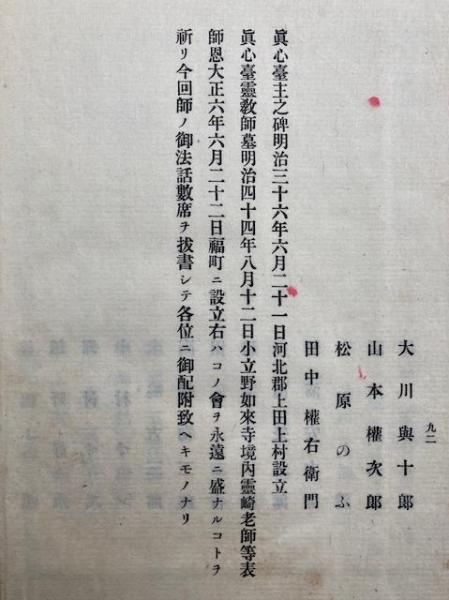 九二
大川與十郎
山本權次郎
松原のふ
田中權右衛門
眞心臺主之碑明治三十六年六月二十一日河北郡上田上村設立
眞心臺靈教師墓明治四十四年八月十二日小立野如來寺境内靈崎老師等表
師恩大正六年六月二十二日福町ニ設立右ハコノ會ヲ永遠ニ盛ナルコトヲ
祈リ今回師ノ御法話數席ヲ拔書シテ各位ニ御配附致ヘキモノナリ